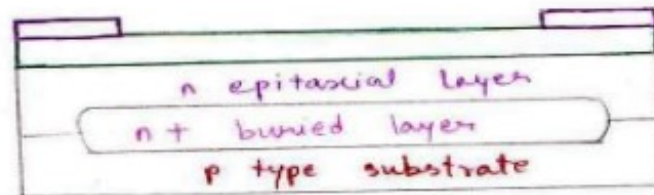 n epitaxial layer
n+ buried layer
p type substrate